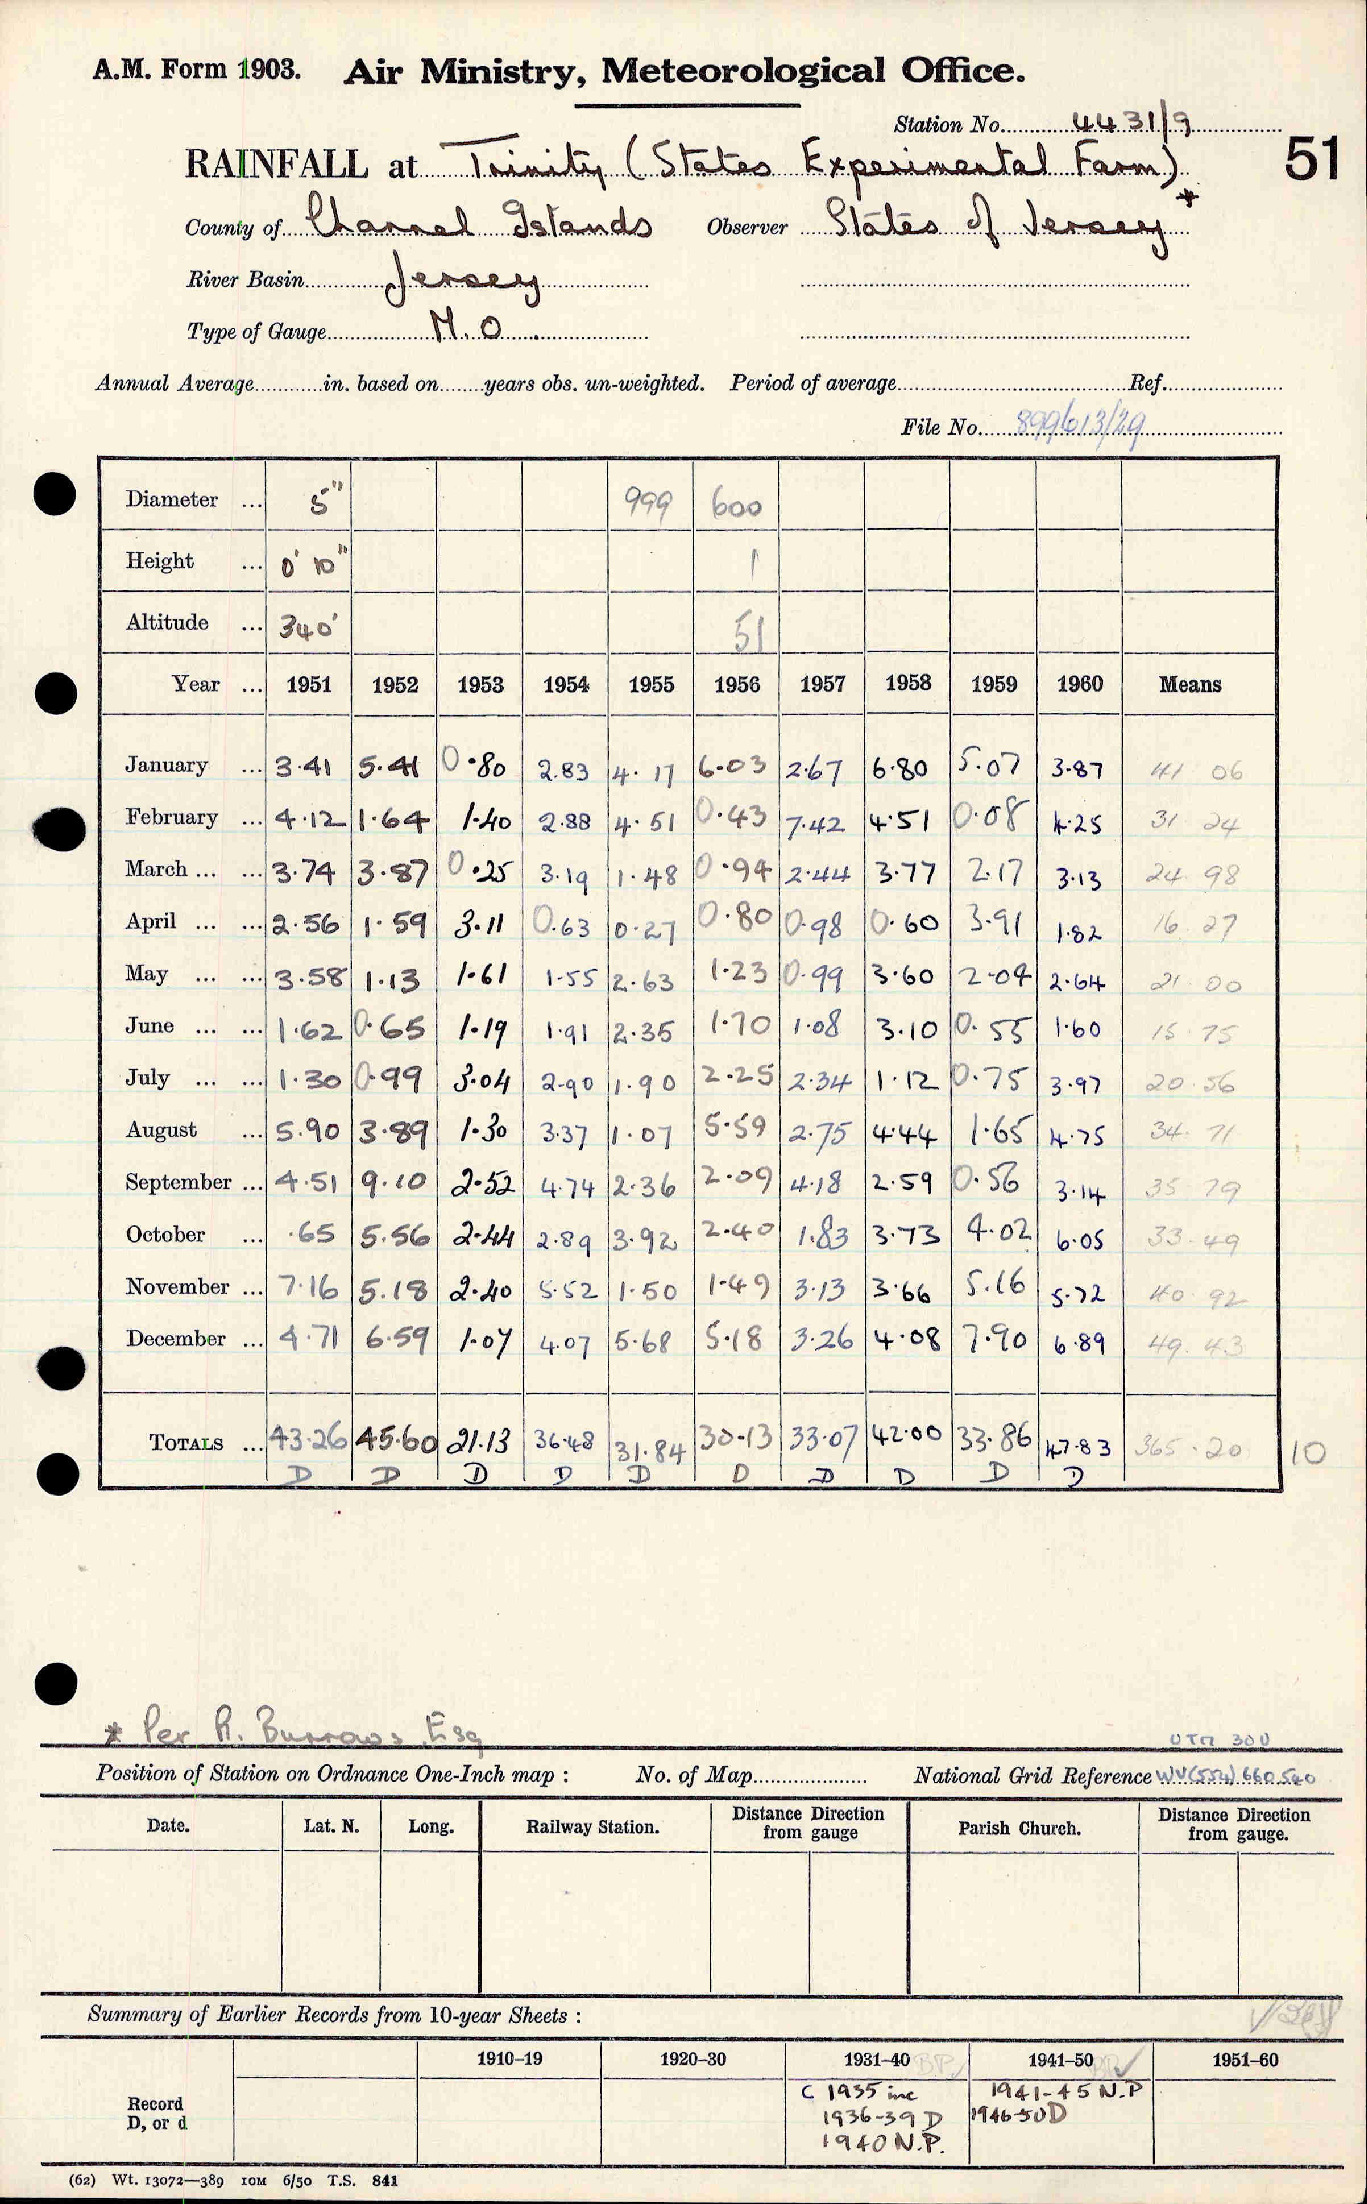 A.M. Form 1903. Air Ministry, Meteorological Office.
Station No. 4431/9
RAINFALL at Trinity (States Experimental Farm) 51
County of Channel Islands Observer States of Jersey *
River Basin Jersey
Type of Gauge M.O
Annual Average in. based on years obs. un-weighted. Period of average Ref.
File No. 899613/29
Diameter ... 5" 999 600
Height ... 0' 10" 1
Altitude ... 340' 51
Year ... 1951 1952 1953 1954 1955 1956 1957 1958 1959 1960 Means
January ... 3.41 5.41 0.80 2.83 4.17 6.03 2.67 6.80 5.07 3.87 41 06
February ... 4.12 1.64 1.40 2.88 4.51 0.43 7.42 4.51 0.08 4.25 31 24
March ... ... 3.74 3.87 0.25 3.19 1.48 0.94 2.44 3.77 2.17 3.13 24 98
April ... ... 2.56 1.59 3.11 0.63 0.27 0.80 0.98 0.60 3.91 1.82 16 27
May ... ... 3.58 1.13 1.61 1.55 2.63 1.23 0.99 3.60 2.04 2.64 21 00
June ... ... 1.62 0.65 1.19 1.91 2.35 1.70 1.08 3.10 0.55 1.60 15 75
July ... ... 1.30 0.99 3.04 2.90 1.90 2.25 2.34 1.12 0.75 3.97 20.56
August ... 5.90 3.89 1.30 3.37 1.07 5.59 2.75 4.44 1.65 4.75 34.71
September ... 4.51 9.10 2.52 4.74 2.36 2.09 4.18 2.59 0.56 3.14 35 79
October ... .65 5.56 2.44 2.89 3.92 2.40 1.83 3.73 4.02 6.05 33.49
November ... 7.16 5.18 2.40 5.52 1.50 1.49 3.13 3.66 5.16 5.72 40.92
December ... 4.71 6.59 1.07 4.07 5.68 5.18 3.26 4.08 7.90 6.89 49.43
TOTALS ... 43.26 45.60 21.13 36.48 31.84 30.13 33.07 42.00 33.86 47.83 365.20 10
D D D D D D D D D D
* Per R. Burrows. Esq
UTM 30U
Position of Station on Ordnance One-Inch map : No. of Map National Grid Reference WV(554) 660 540
Date. Lat. N. Long. Railway Station. Distance Direction from gauge Parish Church. Distance Direction from gauge.
Summary of Earlier Records from 10-year Sheets :
1910–19 1920–30 1931–40 1941–50 1951–60
Record D, or d
C 1935 inc 1941-45 N.P
1936-39 D 1946-50 D
1940 N.P.
(62) Wt. 13072—389 10M 6/50 T.S. 841